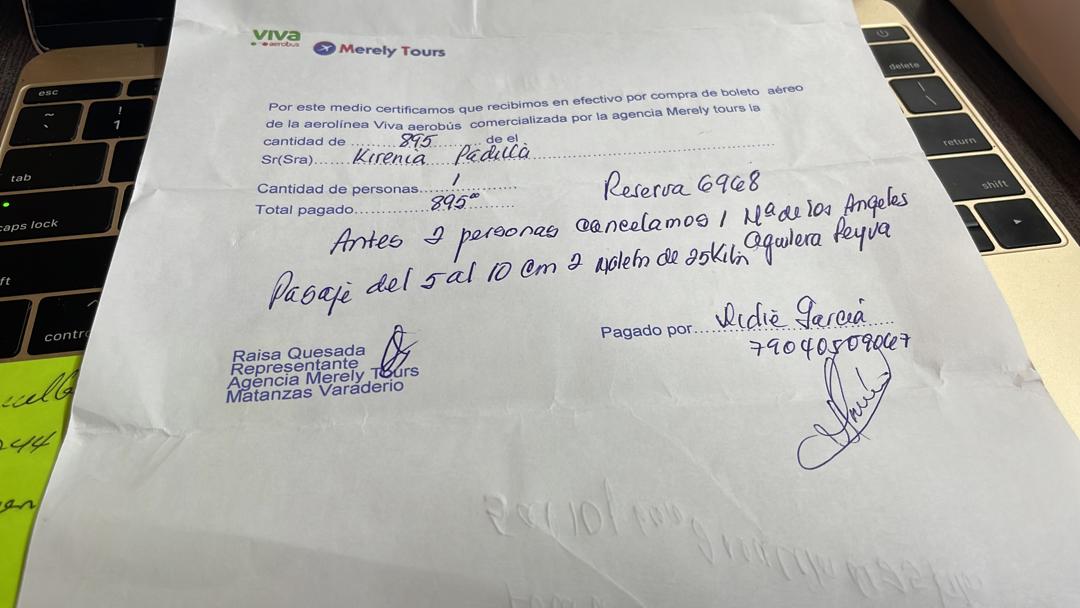 viva
aerobus
Merely Tours
Por este medio certificamos que recibimos en efectivo por compra de boleto aéreo
de la aerolínea Viva aerobús comercializada por la agencia Merely tours la
cantidad de ......895...... de el
Sr(Sra)..... Kirenia Padilla
Cantidad de personas.....1
Reserva 6968
Total pagado.....895.00
Antes 2 personas cancelamos 1 Ma de los Angeles
Aguilera Peyva
Pasaje del 5 al 10 con 2 de 25Kil
Pagado por..... Garcia
79040509067
Raisa Quesada
Representante
Agencia Merely Tours
Matanzas Varaderio
esc
~
!
1
tab
caps lock
control
delete
\
return
shift
244